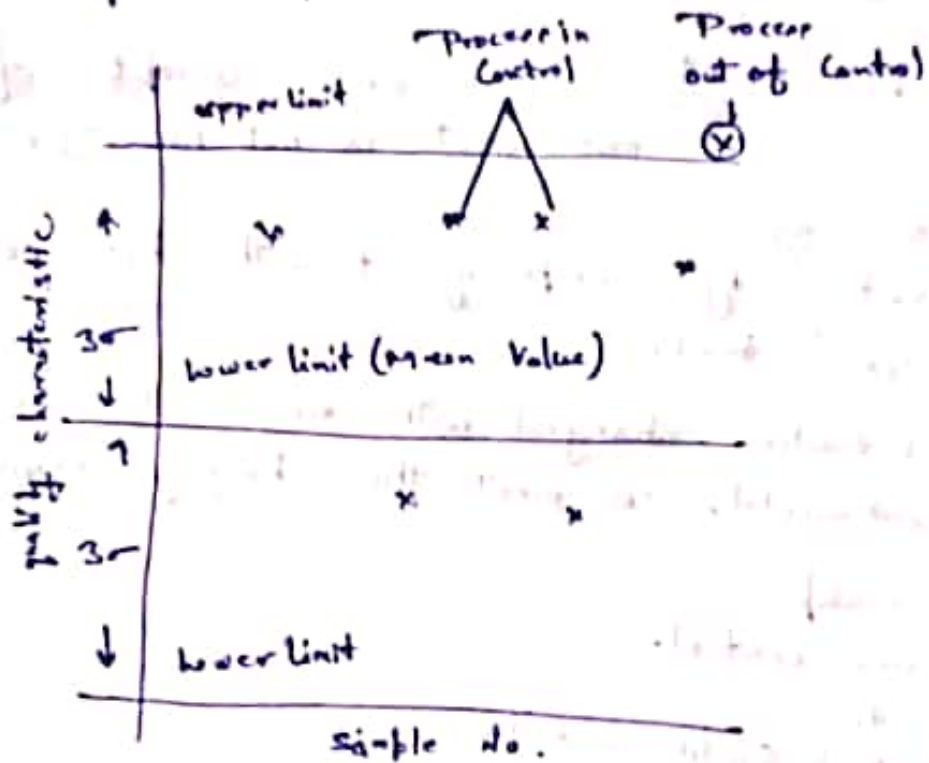 Process in
Control
Process
out of Control
upper limit
quality characteristic
3σ
lower limit (mean value)
3σ
lower limit
sample No.